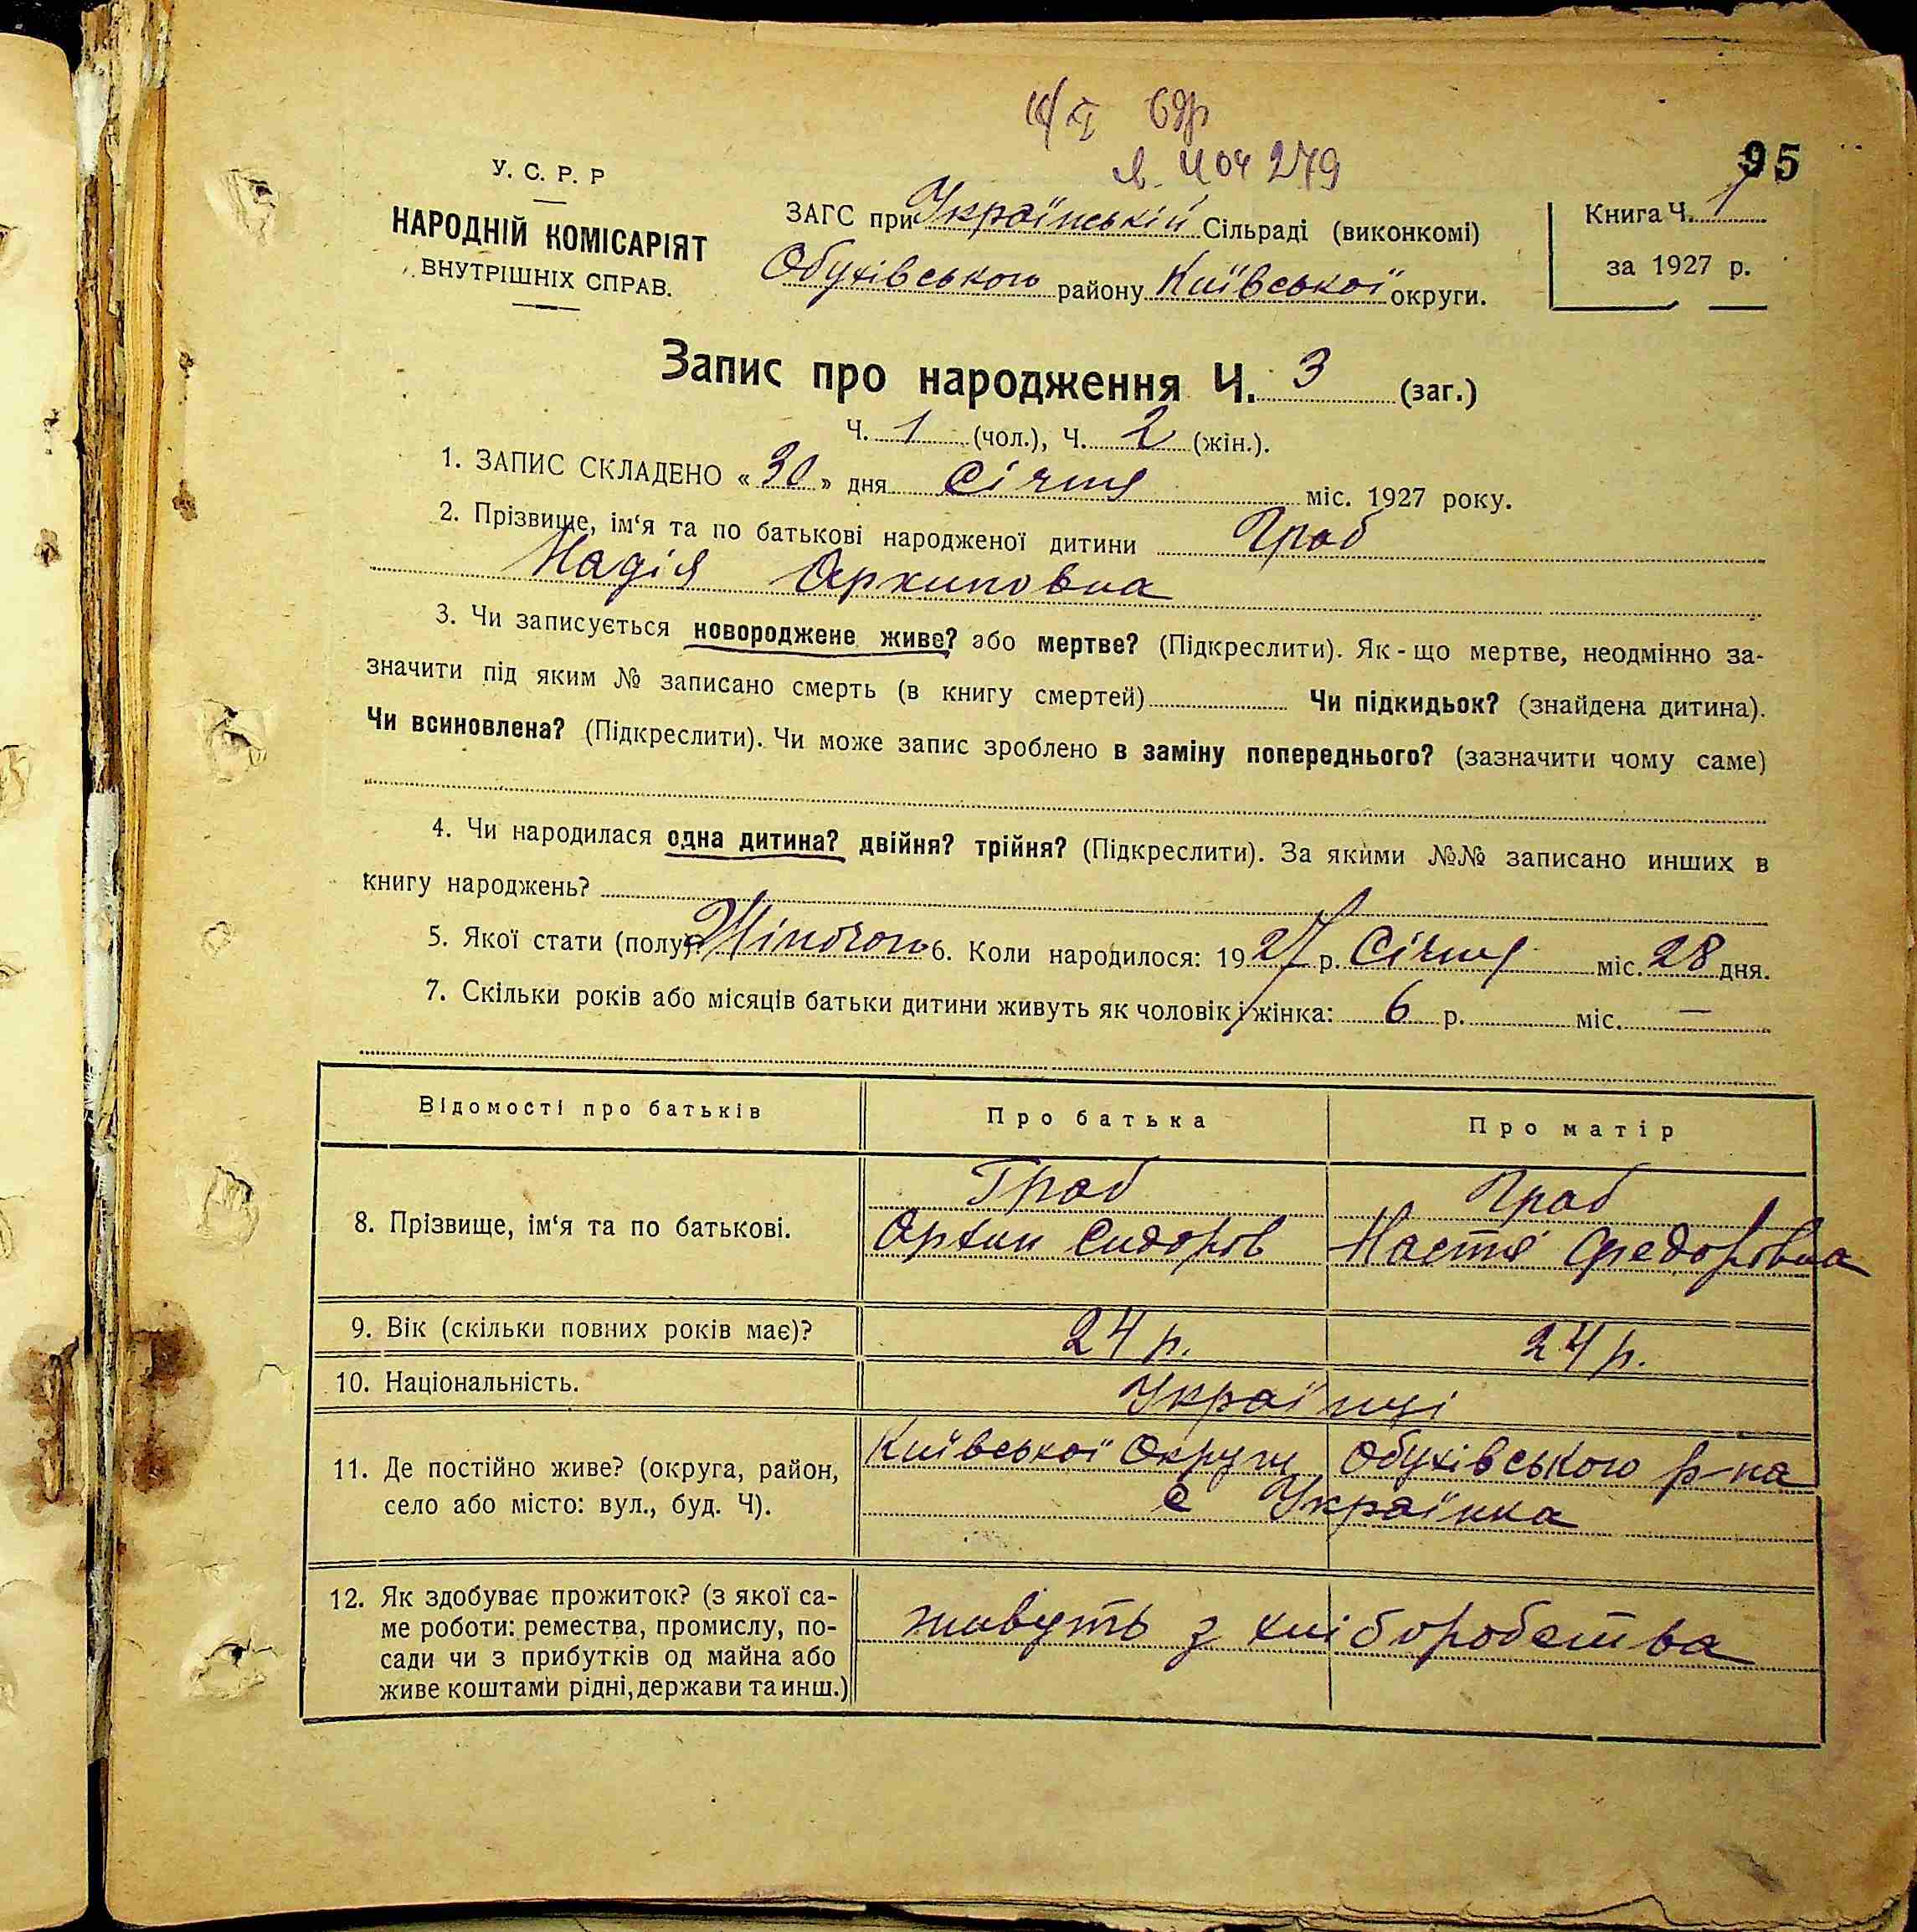 95
У. С. Р. Р
НАРОДНІЙ КОМІСАРІЯТ
ВНУТРІШНІХ СПРАВ.
404279
ЗАГС при Українській Сільраді (виконкомі)
Обухівського району Київської округи.
Книга Ч. 1
за 1927 р.
Запис про народження Ч. 3 (заг.)
Ч. 1 (чол.), Ч. 2 (жін.).
1. ЗАПИС СКЛАДЕНО «30» дня Січня міс. 1927 року.
2. Прізвище, ім‘я та по батькові народженої дитини Граб
Надія Архиповна
3. Чи записується новороджене живе? або мертве? (Підкреслити). Як-що мертве, неодмінно за-
значити під яким № записано смерть (в книгу смертей) Чи підкидьок? (знайдена дитина).
Чи всиновлена? (Підкреслити). Чи може запис зроблено в заміну попереднього? (зазначити чому саме)
4. Чи народилася одна дитина? двійня? трійня? (Підкреслити). За якими №№ записано инших в
книгу народжень?
5. Якої стати (полу)? Жіночого 6. Коли народилося: 1927 р. Січня міс. 28 дня.
7. Скільки років або місяців батьки дитини живуть як чоловік і жінка: 6 р. міс. —
Відомості про батьків Про батька Про матір
8. Прізвище, ім‘я та по батькові.
Граб Граб
Архип Сидоров Настя Федоровна
9. Вік (скільки повних років має)? 24 р. 24 р.
10. Національність. Українці
11. Де постійно живе? (округа, район,
село або місто: вул., буд. Ч).
Київської Округи Обухівського р-на
с Українка
12. Як здобуває прожиток? (з якої са-
ме роботи: ремества, промислу, по-
сади чи з прибутків од майна або
живе коштами рідні, держави та инш.)
живуть з хліборобства